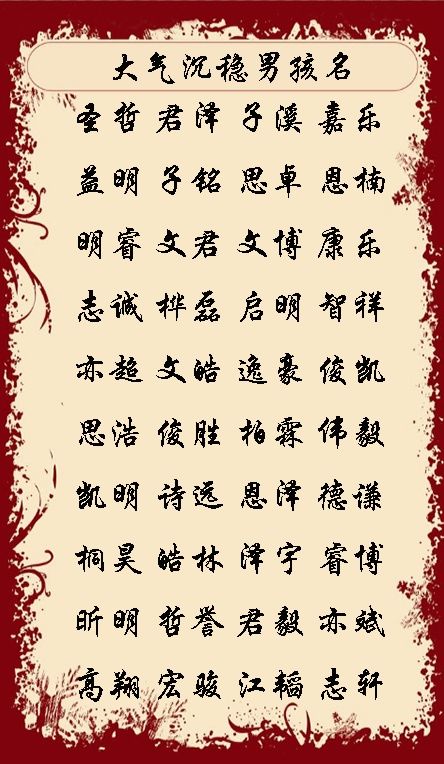 大气沉稳男孩名
圣哲 君泽 子溪 嘉乐
益明 子铭 思卓 恩楠
明睿 文君 文博 康乐
志诚 桦磊 启明 智祥
亦超 文皓 逸豪 俊凯
思浩 俊胜 柏霖 伟毅
凯明 诗远 恩泽 德谦
桐昊 皓林 泽宇 睿博
昕明 哲誉 君毅 亦斌
高翔 宏骏 江韬 志轩